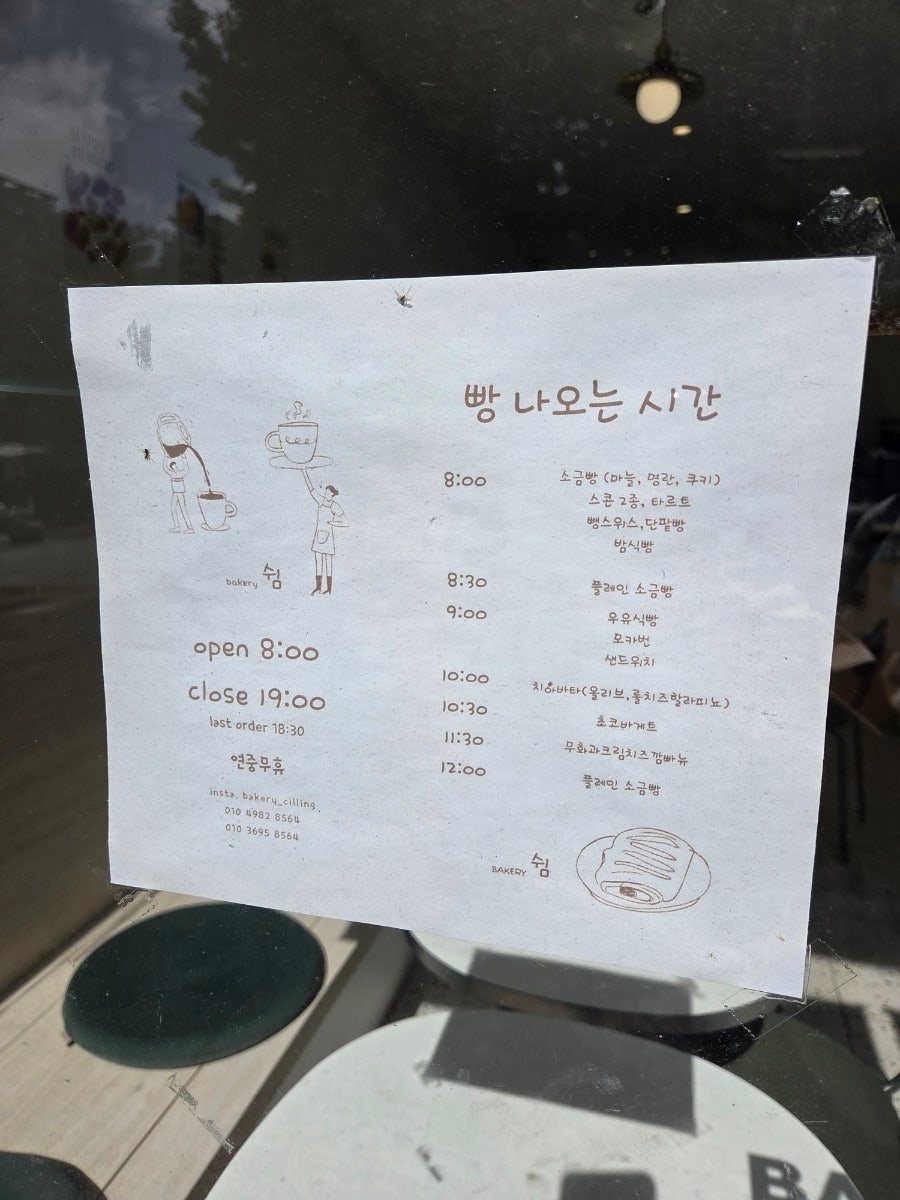 bakery 쉼
open 8:00
close 19:00
last order 18:30
연중무휴
insta. bakery_cilling
010 4982 8564
010 3695 8564
빵 나오는 시간
8:00 소금빵 (마늘, 명란, 쿠키)
스콘 2종, 타르트
뺑스위스, 단팥빵
밤식빵
8:30 플레인 소금빵
9:00 우유식빵
모카번
샌드위치
10:00 치아바타(올리브,롤치즈할라피뇨)
10:30 초코바게트
11:30 무화과크림치즈깜빠뉴
12:00 플레인 소금빵
BAKERY 쉼
BA